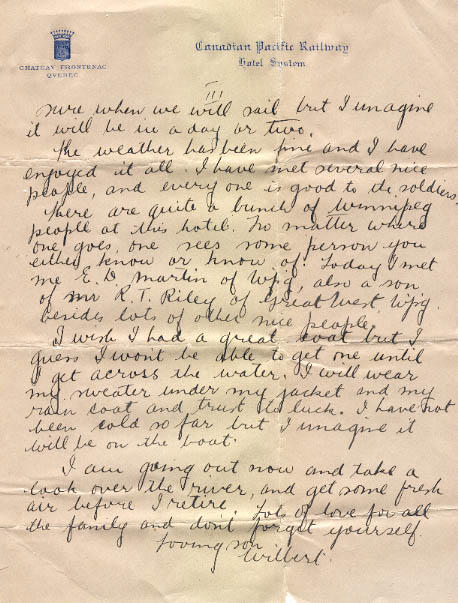 CHATEAU FRONTENAC
QUEBEC
Canadian Pacific Railway
Hotel System
III
sure when we will sail but I imagine
it will be in a day or two.
The weather has been fine and I have
enjoyed it all. I have met several nice
people, and every one is good to the soldiers.
There are quite a bunch of Winnipeg
people at this hotel. No matter where
one goes, one sees some person you
either know or know of. Today I met
me E. D Martin of Wpg, also a son
of Mr R. T. Riley of Great West Wpg.
besides lots of other nice people.
I wish I had a great coat but I
guess I wont be able to get one until
I get across the water. I will wear
my sweater under my jacket and my
rain coat and trust to luck. I have not
been cold so far but I imagine it
will be on the boat.
I am going out now and take a
look over the river, and get some fresh
air before I retire. Lots of love for all
the family and dont forget yourself
Loving son
Wilbert.